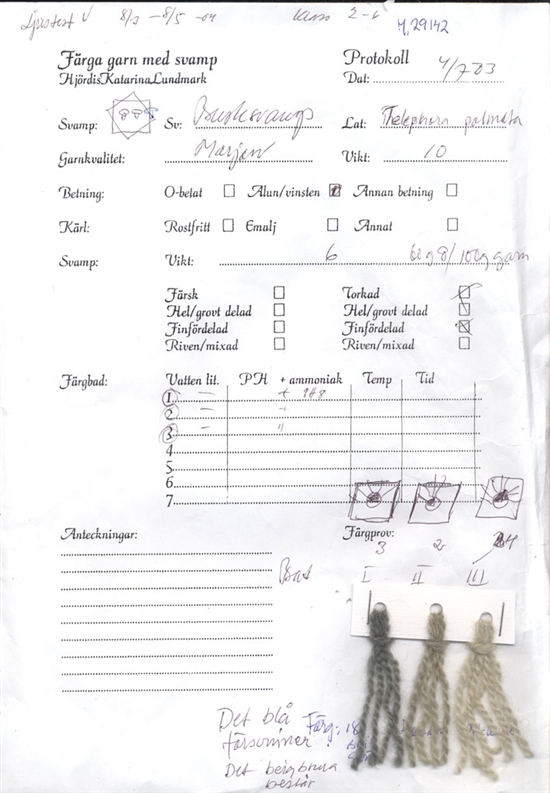 Ljustest V 8/3 – 8/5 -04
4,29142
Färga garn med svamp Protokoll
HjördisKatarinaLundmark Dat: 4/7 03
Svamp: Sv: Busksvamp Lat: Thelephora palmata
Garnkvalitet: Marjan Vikt: 10
Betning: O-betat Alun/vinsten Annan betning
Kärl: Rostfritt Emalj Annat
Svamp: Vikt: 6 60 g /100g garn
Färsk Torkad
Hel/grovt delad Hel/grovt delad
Finfördelad Finfördelad
Riven/mixad Riven/mixad
Färgbad: Vatten lit. PH + ammoniak Temp Tid
1. — + PH8
2. — "
3. — "
4
5
6
7
Anteckningar: Färgprov:
3 2
Bad I II III
Det blå Färg: 18
försvinner
Det beigbruna
består